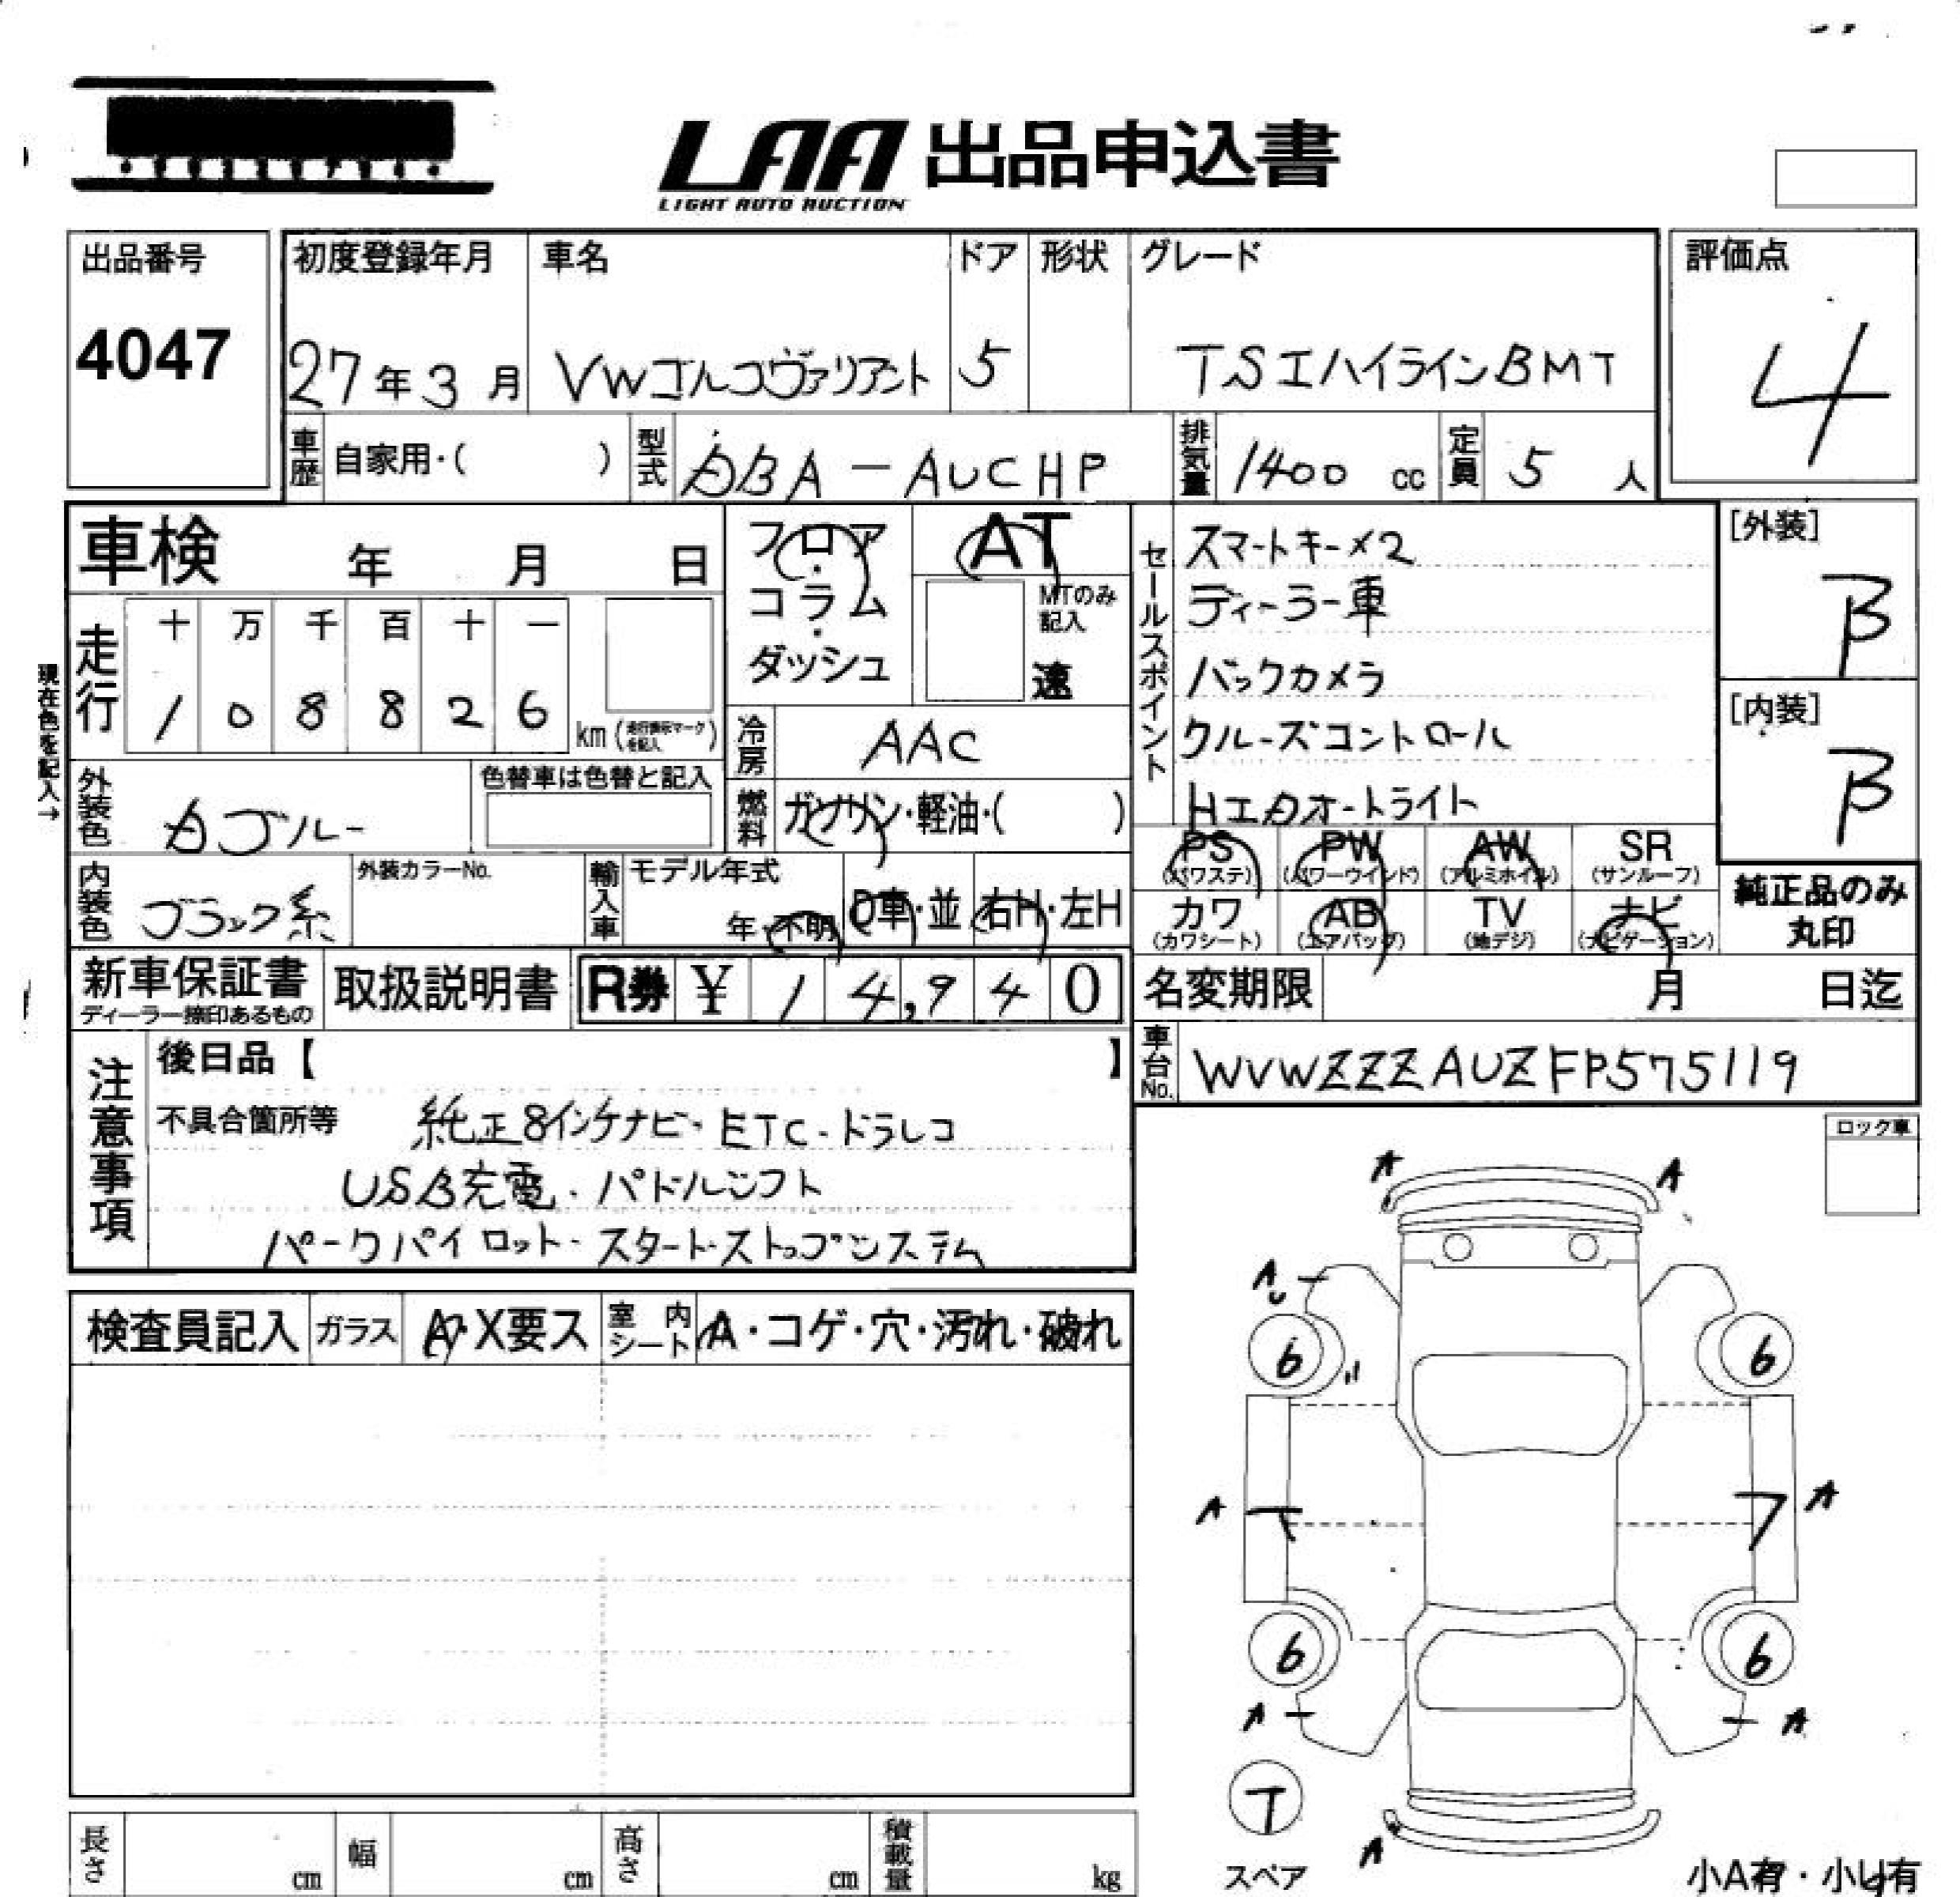 LAA 出品申込書
LIGHT AUTO AUCTION
出品番号
4047
初度登録年月
27年3月
車名
VWゴルフヴァリアント
ドア
5
形状
グレード
TSIハイラインBMT
評価点
4
車歴
自家用・( )
型式
ABA-AUCHP
排気量
1400 cc
定員
5 人
車検 年 月 日
フロア・コラム・ダッシュ
AT
MTのみ記入
速
セールスポイント
スマートキー×2
ディーラー車
バックカメラ
クルーズコントロール
HIDオートライト
[外装]
B
[内装]
B
現在色を記入→
走行
十 万 千 百 十 一
1 0 8 8 2 6
km (走行表示マークを記入)
冷房
AAC
燃料
ガソリン・軽油・( )
外装色
色替車は色替と記入
内装色
ブラック系
外装カラーNo.
輸入車
モデル年式
年・不明
D車・並
右H・左H
PS
(パワステ)
PW
(パワーウインド)
AW
(アルミホイル)
SR
(サンルーフ)
カワ
(カワシート)
AB
(エアバッグ)
TV
(地デジ)
ナビ
(ナビゲーション)
純正品のみ
丸印
新車保証書
ディーラー捺印あるもの
取扱説明書
R券 ¥ 14,940
名変期限 月 日迄
車台No.
WVWZZZAUZFP575119
注意事項
後日品【 】
不具合箇所等
純正8インチナビ・ETC・ドラレコ
USB充電・パドルシフト
パークパイロット・スタートストップシステム
ロック車
検査員記入
ガラス
A・X要ス
室内シート
A・コゲ・穴・汚れ・破れ
A A
A
6 6
A A
6 6
A A
T
スペア
A
小A有・小U有
長さ cm
幅 cm
高さ cm
積載量 kg